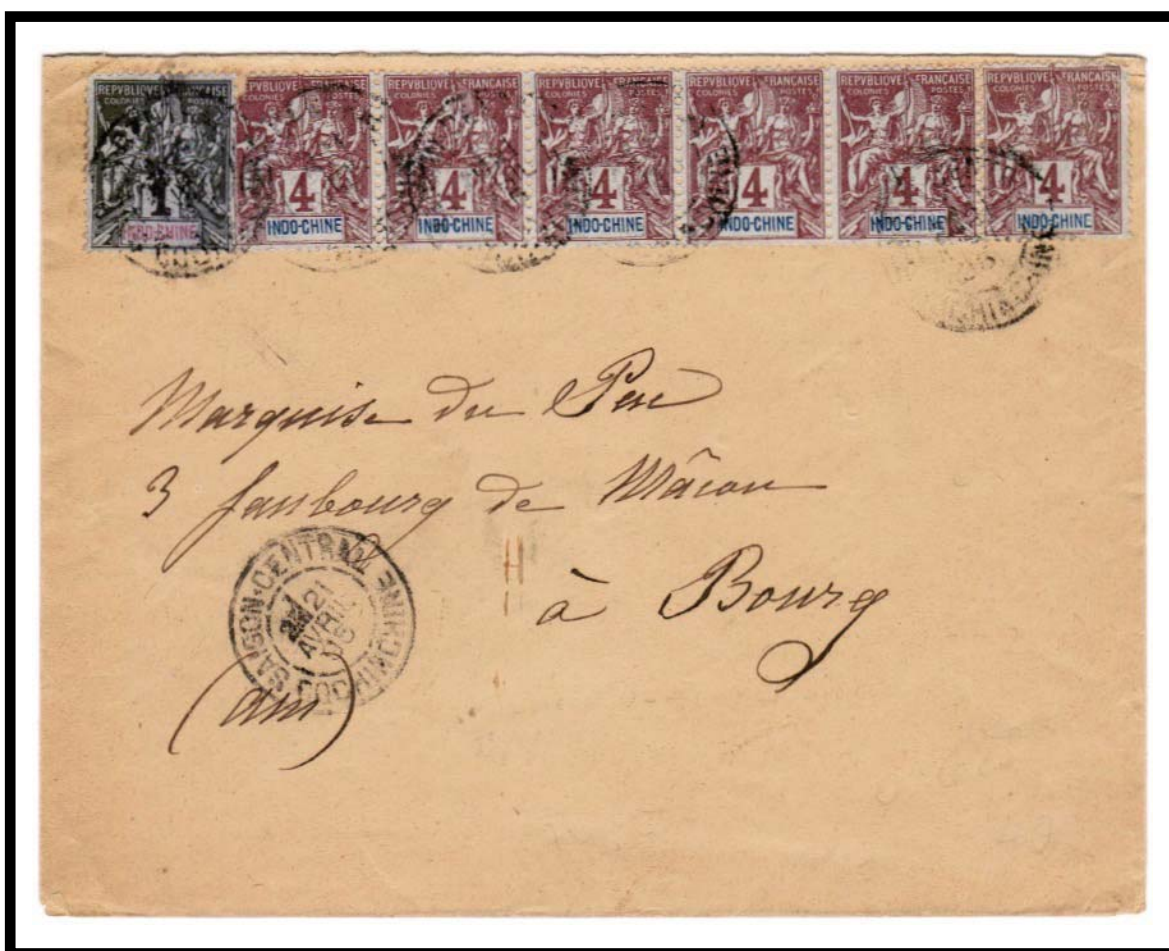 REPVBLIQVE FRANÇAISE
COLONIES POSTES
1
INDO-CHINE
4 INDO-CHINE
REPVBLIQVE FRANÇAISE
COLONIES POSTES
4 INDO-CHINE
REPVBLIQVE FRANÇAISE
COLONIES POSTES
4 INDO-CHINE
REPVBLIQVE FRANÇAISE
COLONIES POSTES
4 INDO-CHINE
REPVBLIQVE FRANÇAISE
COLONIES POSTES
4 INDO-CHINE
REPVBLIQVE FRANÇAISE
COLONIES POSTES
4 INDO-CHINE
Marquise du
3 faubourg de Mâcon
à Bourg
(Ain)
SAIGON-CENTRAL COCHINCHINE
21
AVRIL